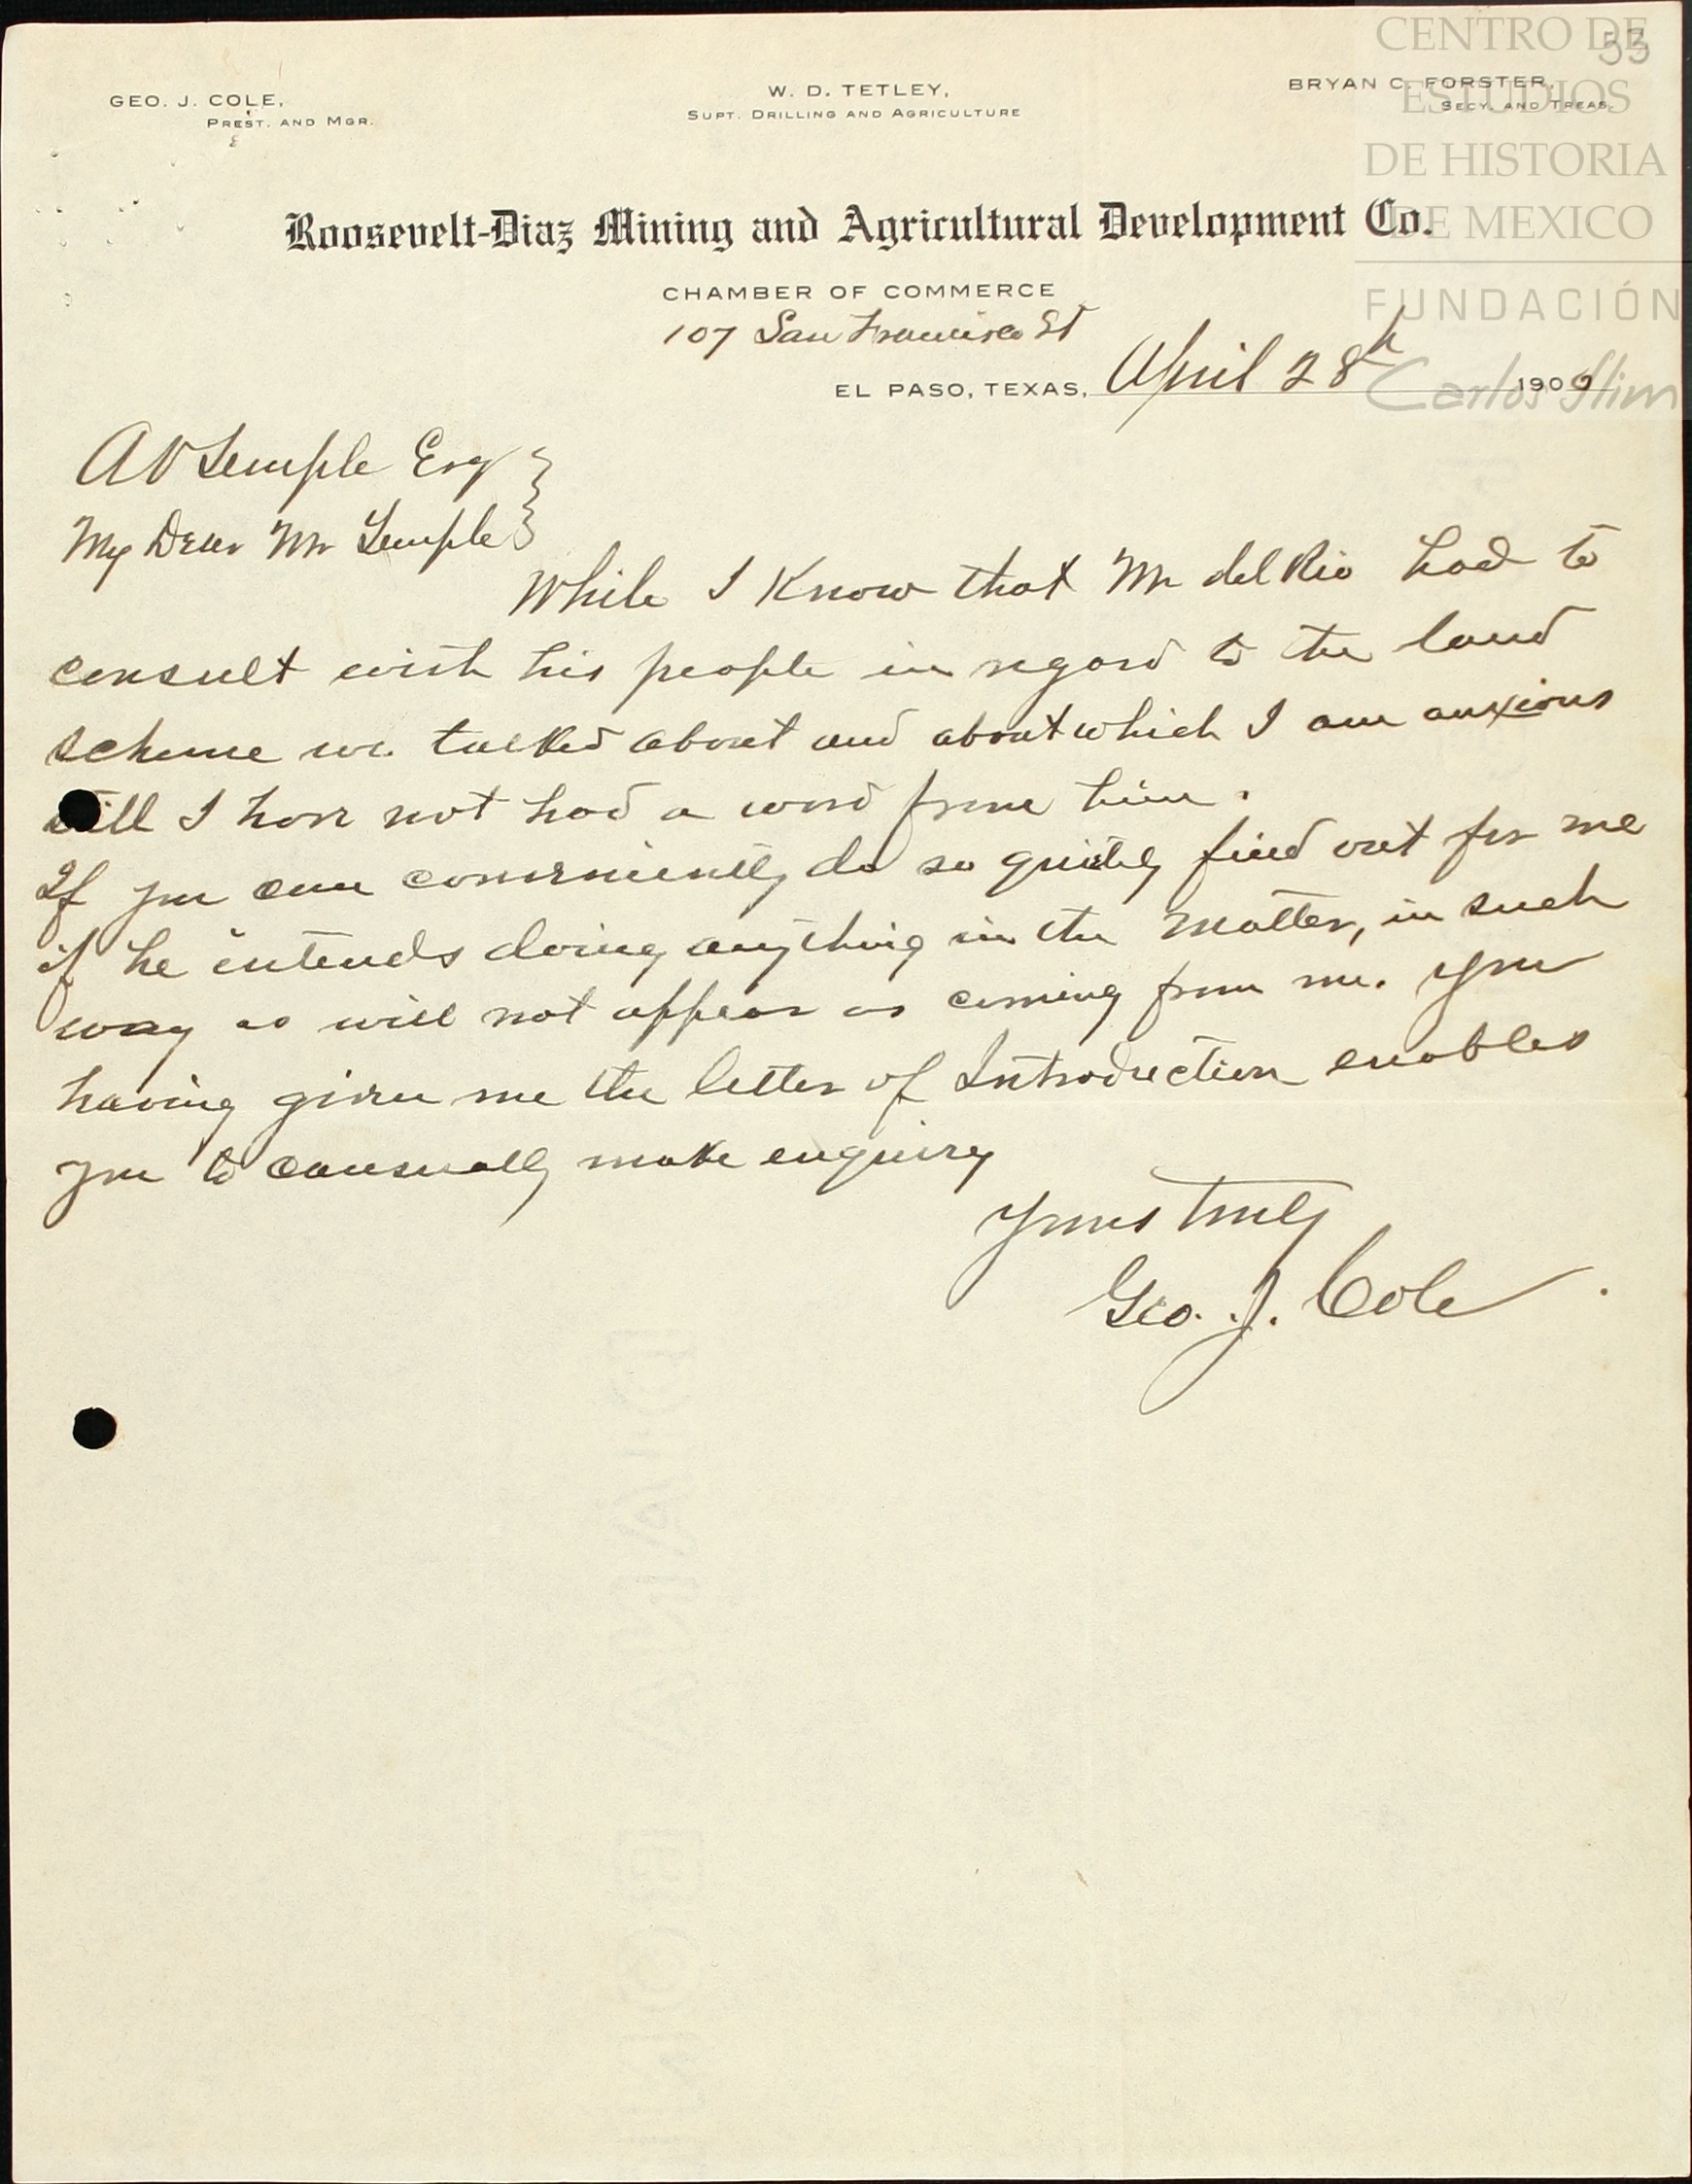 53
CENTRO DE
ESTUDIOS
DE HISTORIA
DE MEXICO
FUNDACIÓN
Carlos Slim
GEO. J. COLE,
PREST. AND MGR.
W. D. TETLEY,
SUPT. DRILLING AND AGRICULTURE
BRYAN C. FORSTER,
SECY. AND TREAS.
Roosevelt-Diaz Mining and Agricultural Development Co.
CHAMBER OF COMMERCE
107 San Francisco St
EL PASO, TEXAS, April 28th 190
A V Temple Esq
My Dear Mr Temple
While I Know that Mr del Rio had to
consult with his people in regard to the land
scheme we talked about and about which I am anxious
still I have not had a word from him.
If you can conveniently do so quietly find out for me
if he intends doing anything in the Matter, in such
way as will not appear as coming from me. You
having given me the letter of Introduction enables
you to causually make enquiry
Yours truly
Geo. J. Cole